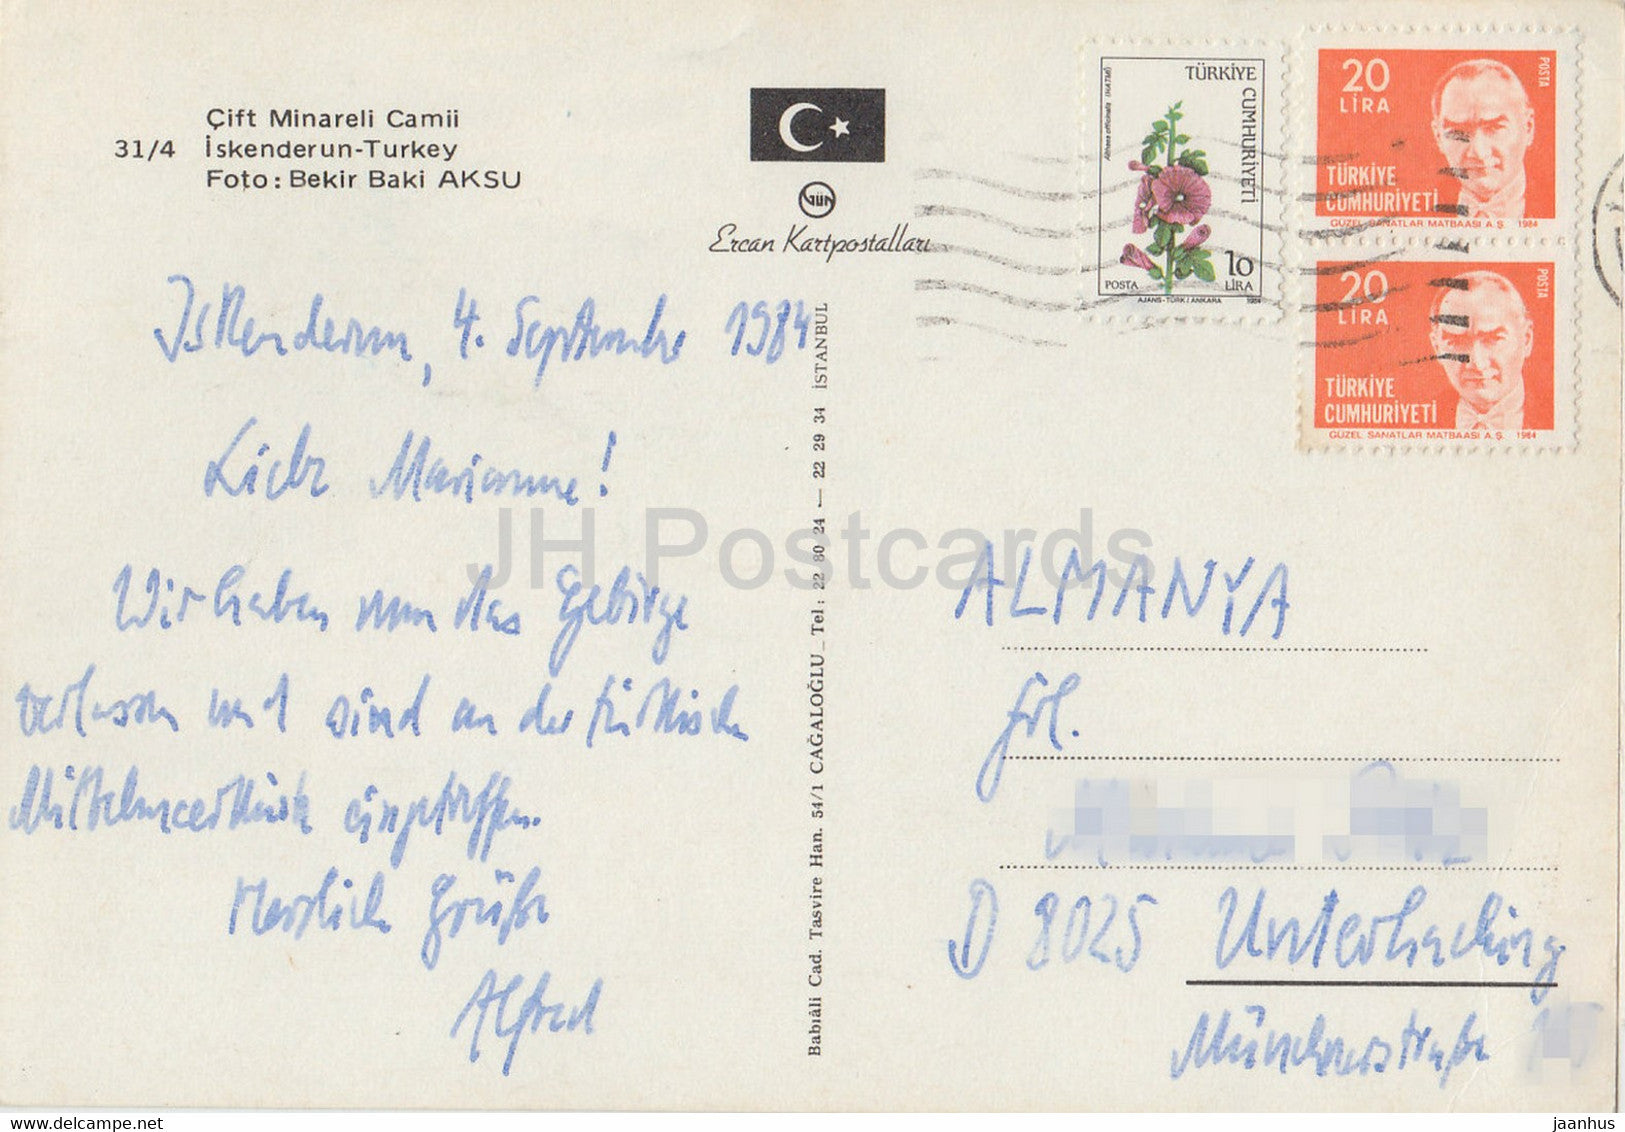 Çift Minareli Camii
31/4 İskenderun-Turkey
Foto: Bekir Baki AKSU
GÜN
Ercan Kartpostalları
Iskenderun, 4. September 1984
Liebe Marianne!
Wir haben nun das Gebirge
verlassen und sind an der türkischen
Mittelmeerküste eingetroffen.
Herzliche Grüße
Alfred
Babıâli Cad. Tasvire Han. 54/1 CAĞALOĞLU_Tel: 22 80 24 — 22 29 34 İSTANBUL
Althaea officinalis (HATMİ)
TÜRKİYE CUMHURİYETİ
POSTA
10 LİRA
AJANS-TÜRK / ANKARA 1984
20 LİRA
POSTA
TÜRKİYE
CUMHURİYETİ
GÜZEL SANATLAR MATBAASI A.Ş. 1984
20 LİRA
POSTA
TÜRKİYE
CUMHURİYETİ
GÜZEL SANATLAR MATBAASI A.Ş. 1984
ALMANYA
Frl.
D 8025 Unterhaching
Münchnerstraße
JH Postcards
www.delcampe.net
jaanhus